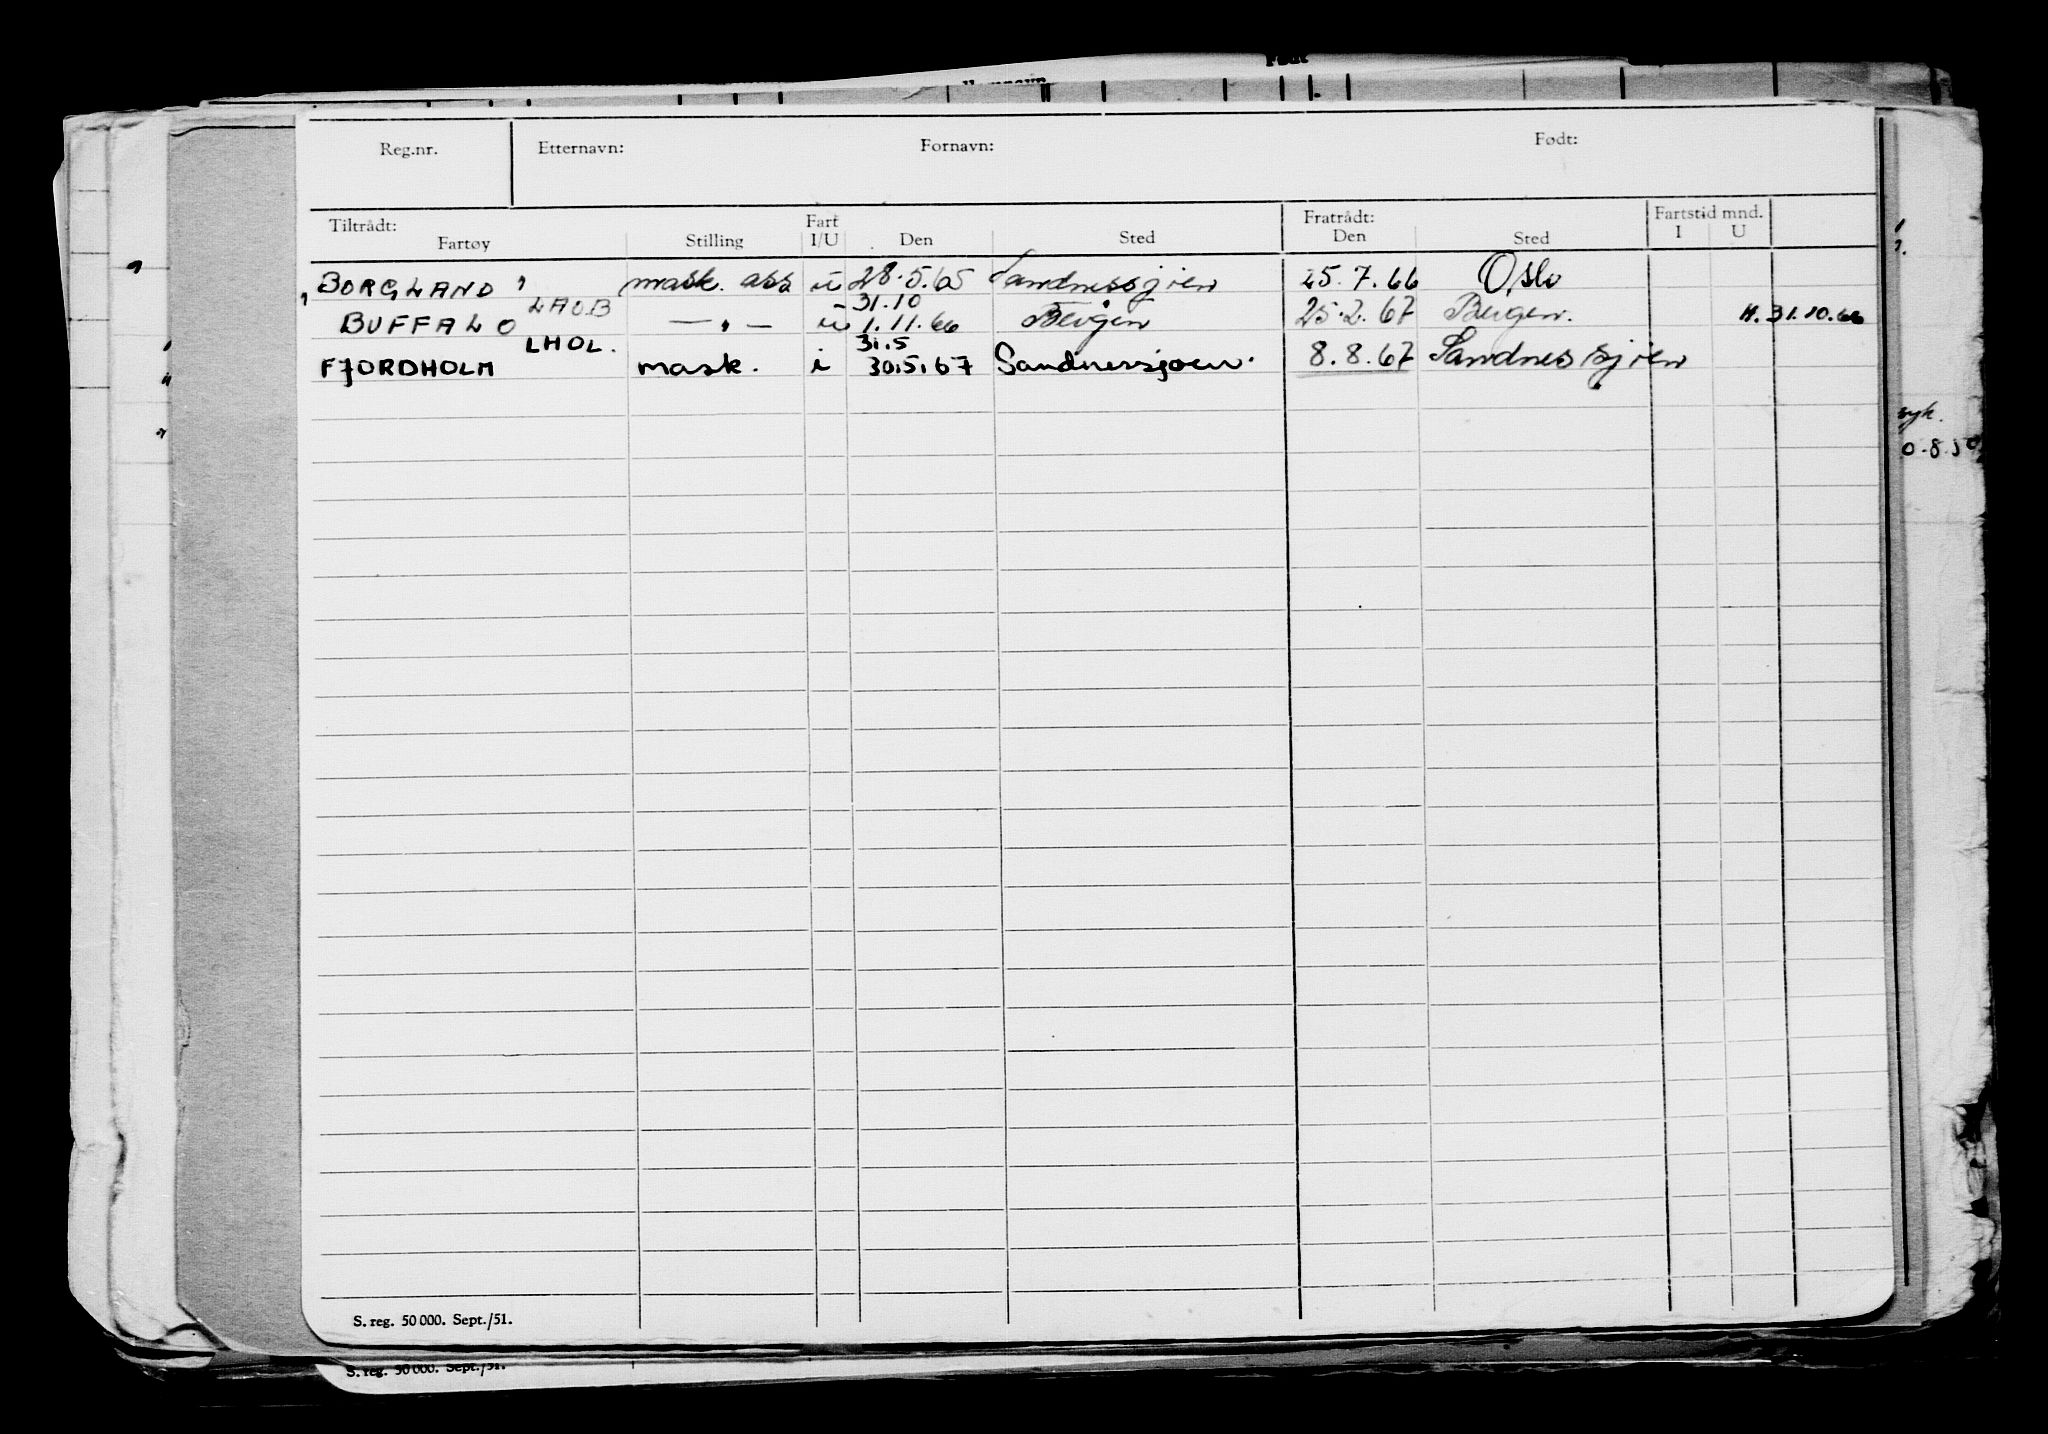 Født
Reg.nr. Etternavn: Fornavn: Født:
Tiltrådt: Fartøy Stilling Fart I/U Den Sted Fratrådt: Den Sted Fartstid mnd. I U
BORGLAND mask. ass u 28.5.65 Sandnessjøen 25.7.66 Oslo
LAOB 31.10
BUFFALO — " — u 1.11.66 Bergen 25.2.67 Bergen. H. 31.10.66
LHOL. 31.5
FJORDHOLM mask. i 30.5.67 Sandnessjøen. 8.8.67 Sandnessjøen
S. reg. 50 000. Sept./51.
S. reg. 50 000. Sept./51.